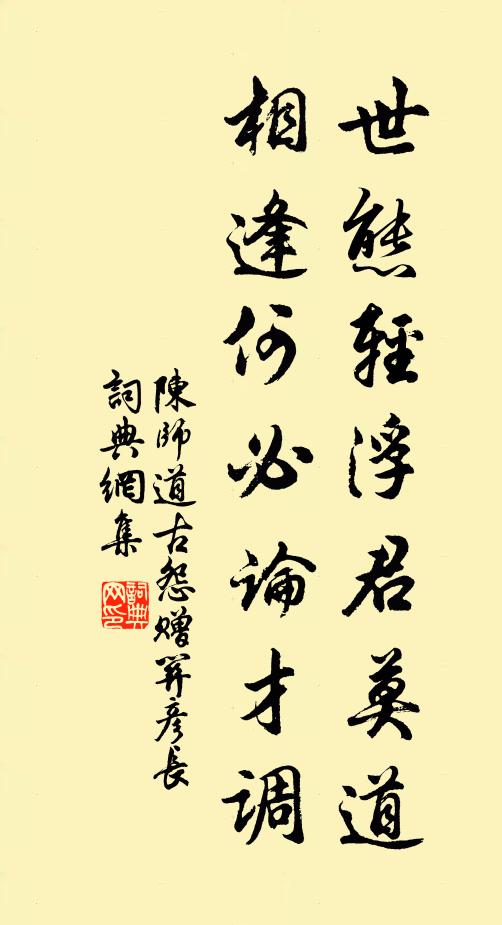 世態輕浮君莫道
相逢何必論才調
陳師道古怨贈羿彥長
詞典網集
詞典網印